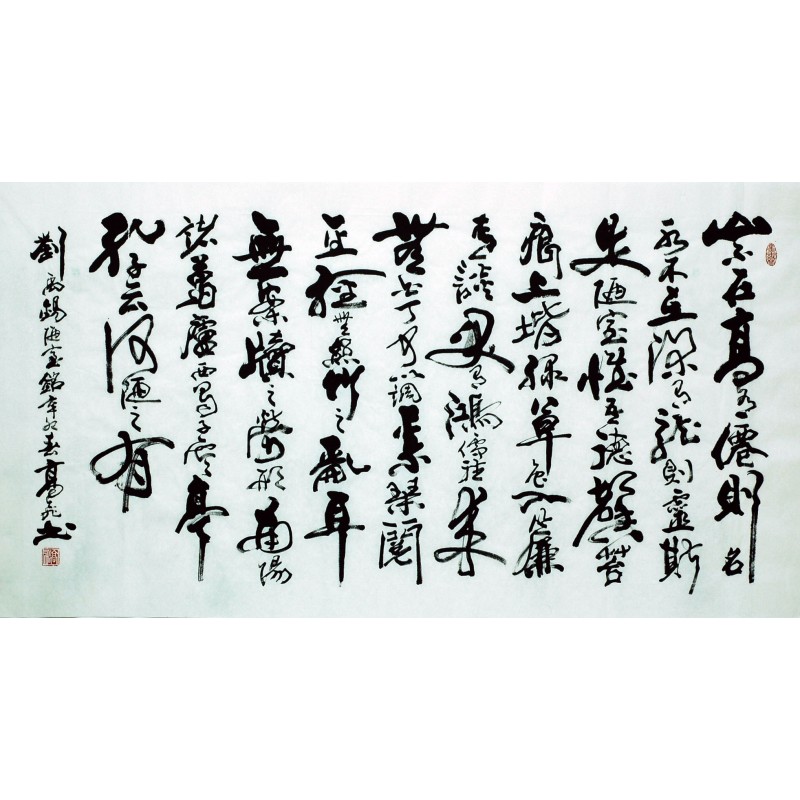 山不在高有僊則名
水不在深有龍則靈斯
是陋室惟吾德馨苔
痕上堦綠草色入簾
青談笑有鴻儒往來
無白丁可以調素琴閱
金經無絲竹之亂耳
無案牘之勞形南陽
諸葛廬西蜀子雲亭
孔子云何陋之有
劉禹錫陋室銘辛卯春高飛書